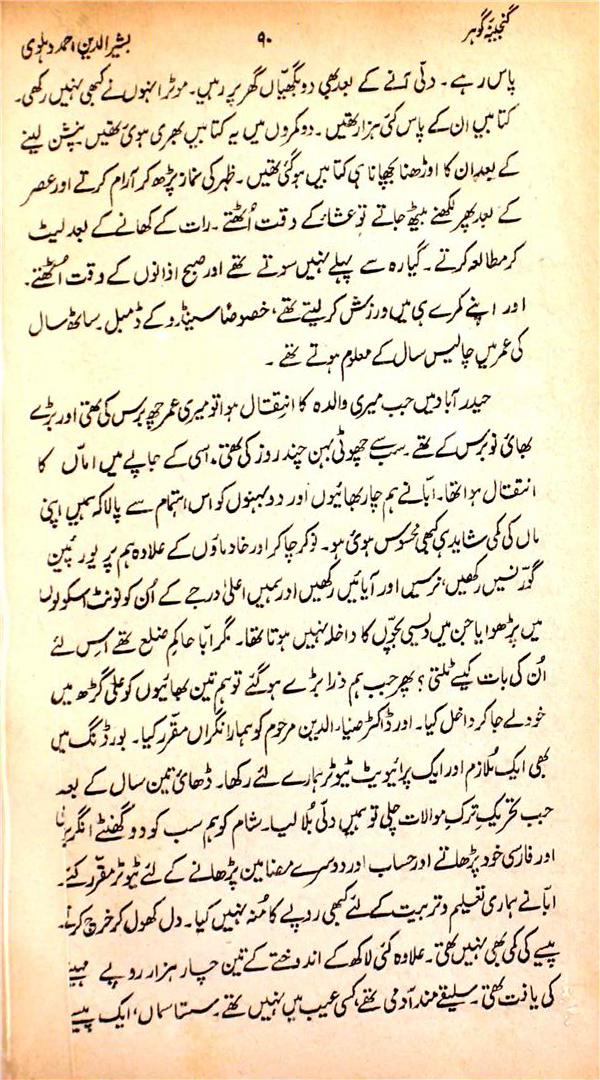 گنجینۂ گوہر
۹۰
بشیر الدین احمد دہلوی
پاس رہے۔ دلّی آنے کے بعد بھی دو بگھیّاں گھر پر رہیں۔ موٹر انہوں نے کبھی نہیں رکھی۔
کتابیں ان کے پاس کئی ہزار تھیں۔ دو کمروں میں یہ کتابیں بھری ہوئی تھیں۔ پنشن لینے
کے بعد ان کا اوڑھنا بچھانا ہی کتابیں ہو گئی تھیں۔ ظہر کی نماز پڑھ کر آرام کرتے اور عصر
کے بعد پھر لکھنے بیٹھ جاتے تو عشاء کے وقت اُٹھتے۔ رات کے کھانے کے بعد لیٹ
کر مطالعہ کرتے۔ گیارہ سے پہلے نہیں سوتے تھے اور صبح اذانوں کے وقت اُٹھتے۔
اور اپنے کمرے ہی میں ورزش کر لیتے تھے، خصوصاً سینڈو کے ڈمبل۔ ساٹھ سال
کی عمر میں چالیس سال کے معلوم ہوتے تھے۔
حیدر آباد میں جب میری والدہ کا انتقال ہوا تو میری عمر چھ برس کی تھی اور بڑے
بھائی نو برس کے تھے۔ سب سے چھوٹی بہن چند روز کی تھی، اسی کے جاپے میں اماں کا
انتقال ہوا تھا۔ ابّا نے ہم چار بھائیوں اور دو بہنوں کو اس اہتمام سے پالا کہ ہمیں اپنی
ماں کی کمی شاید ہی کبھی محسوس ہوئی ہو۔ نوکر چاکر اور خادماؤں کے علاوہ ہم پر یورپین
گورنسیں رکھیں، نرسیں اور آیائیں رکھیں اور ہمیں اعلیٰ درجے کے اُن کونونٹ اسکولوں
میں پڑھوایا جن میں دیسی بچّوں کا داخلہ نہیں ہوتا تھا۔ مگر ابّا حاکم ضلع تھے اس لئے
اُن کی بات کیسے ٹلتی؟ پھر جب ہم ذرا بڑے ہو گئے تو ہم تین بھائیوں کو علی گڑھ میں
خود لے جا کر داخل کیا۔ اور ڈاکٹر ضیاء الدین مرحوم کو ہمارا نگراں مقرّر کیا۔ بورڈنگ میں
بھی ایک مُلازم اور ایک پرائیویٹ ٹیوٹر ہمارے لئے رکھا۔ ڈھائی تین سال کے بعد
جب تحریکِ ترکِ موالات چلی تو ہمیں دلّی بُلا لیا۔ شام کو ہم سب کو دو گھنٹے انگریزی
اور فارسی خود پڑھاتے اور حساب اور دوسرے مضامین پڑھانے کے لئے ٹیوٹر مقرّر کئے۔
ابّا نے ہماری تعلیم و تربیت کے لئے کبھی روپے کا مُنہ نہیں کیا۔ دل کھول کر خرچ کرتے۔
پیسے کی کمی بھی نہیں تھی۔ علاوہ کئی لاکھ کے اندوختے کے تین چار ہزار روپے مہینے
کی یافت تھی۔ سلیقے مند آدمی تھے، کسی عیب میں نہیں تھے۔ سستا سماں، ایک پیسے